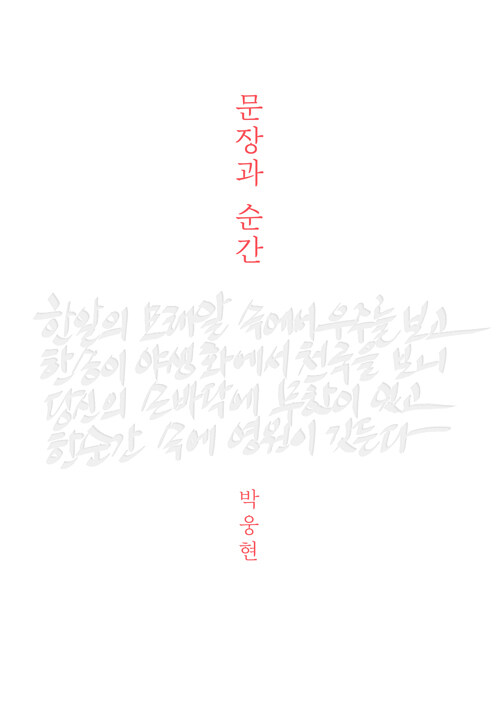 문장과 순간
한 알의 모래알 속에서 우주를 보고
한 송이 야생화에서 천국을 보니
당신의 손바닥에 무한이 있고
한순간 속에 영원이 깃든다
박웅현